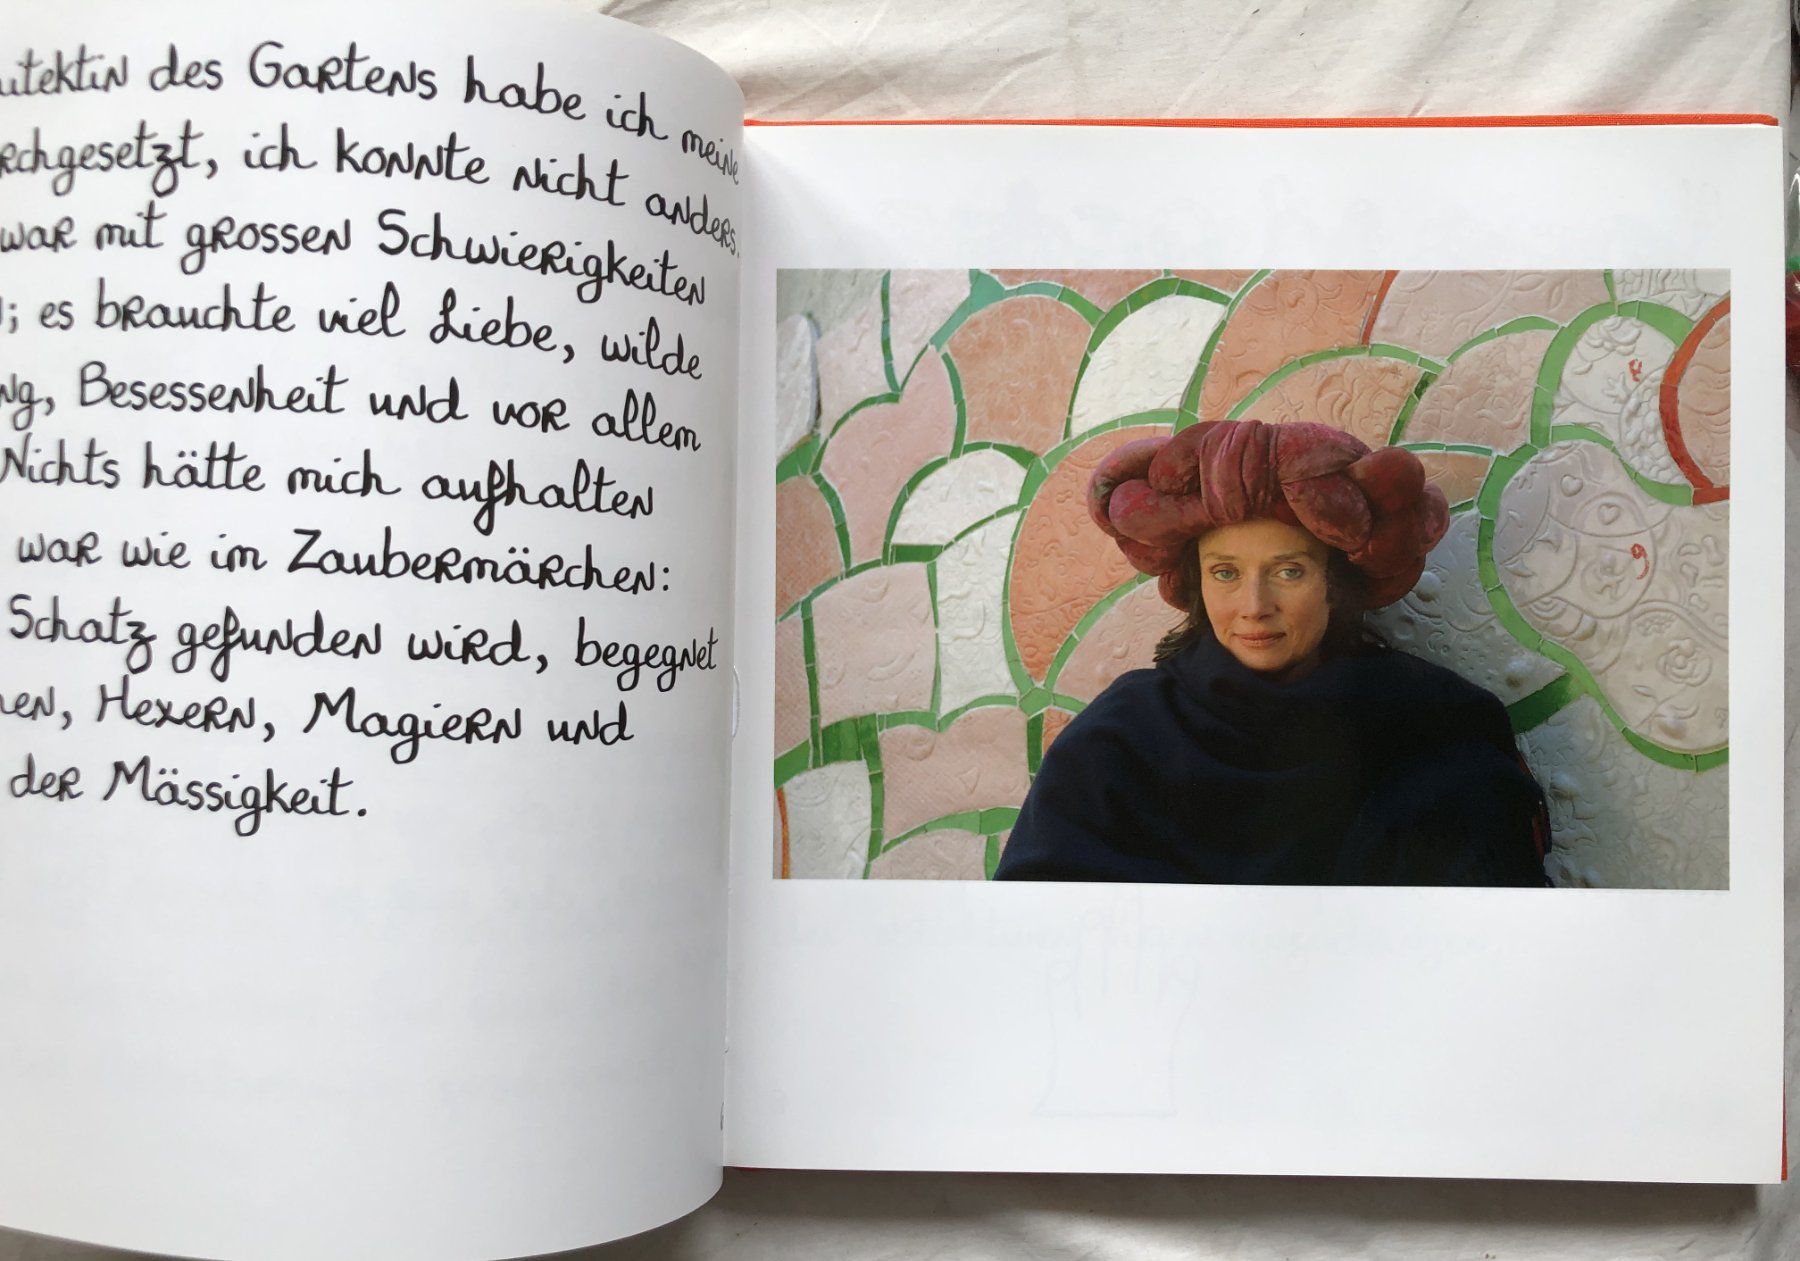 des Gartens habe ich meine
ich konnte nicht anders.
war mit grossen Schwierigkeiten
; es brauchte viel Liebe, wilde
, Besessenheit und vor allem
Nichts hätte mich aufhalten
war wie im Zaubermärchen:
Schatz gefunden wird, begegnet
, Hexern, Magiern und
der Mässigkeit.